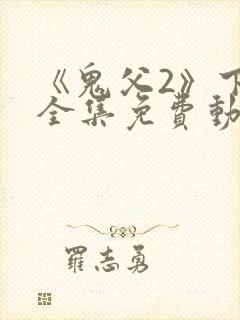 《鬼父2》下
全集免费動
羅志勇